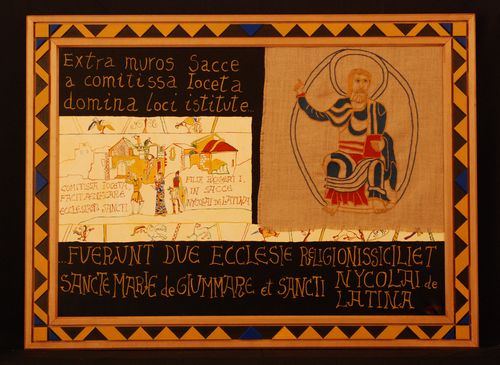 Extra muros Sacce
a comitissa Ioceta
domina loci istitute...
COMITISSA IOCETA
FACIT AEDIFICARE
ECCLESIAM SANCTI
FILIA ROGERI I.
IN SACCE
NYCOLAI DE LATINA
...FUERUNT DUE ECCLESIE RELIGIONIS SICILIE T
SANCTE MARIE de GIUMMARE et SANCTI NYCOLAI de
LATINA